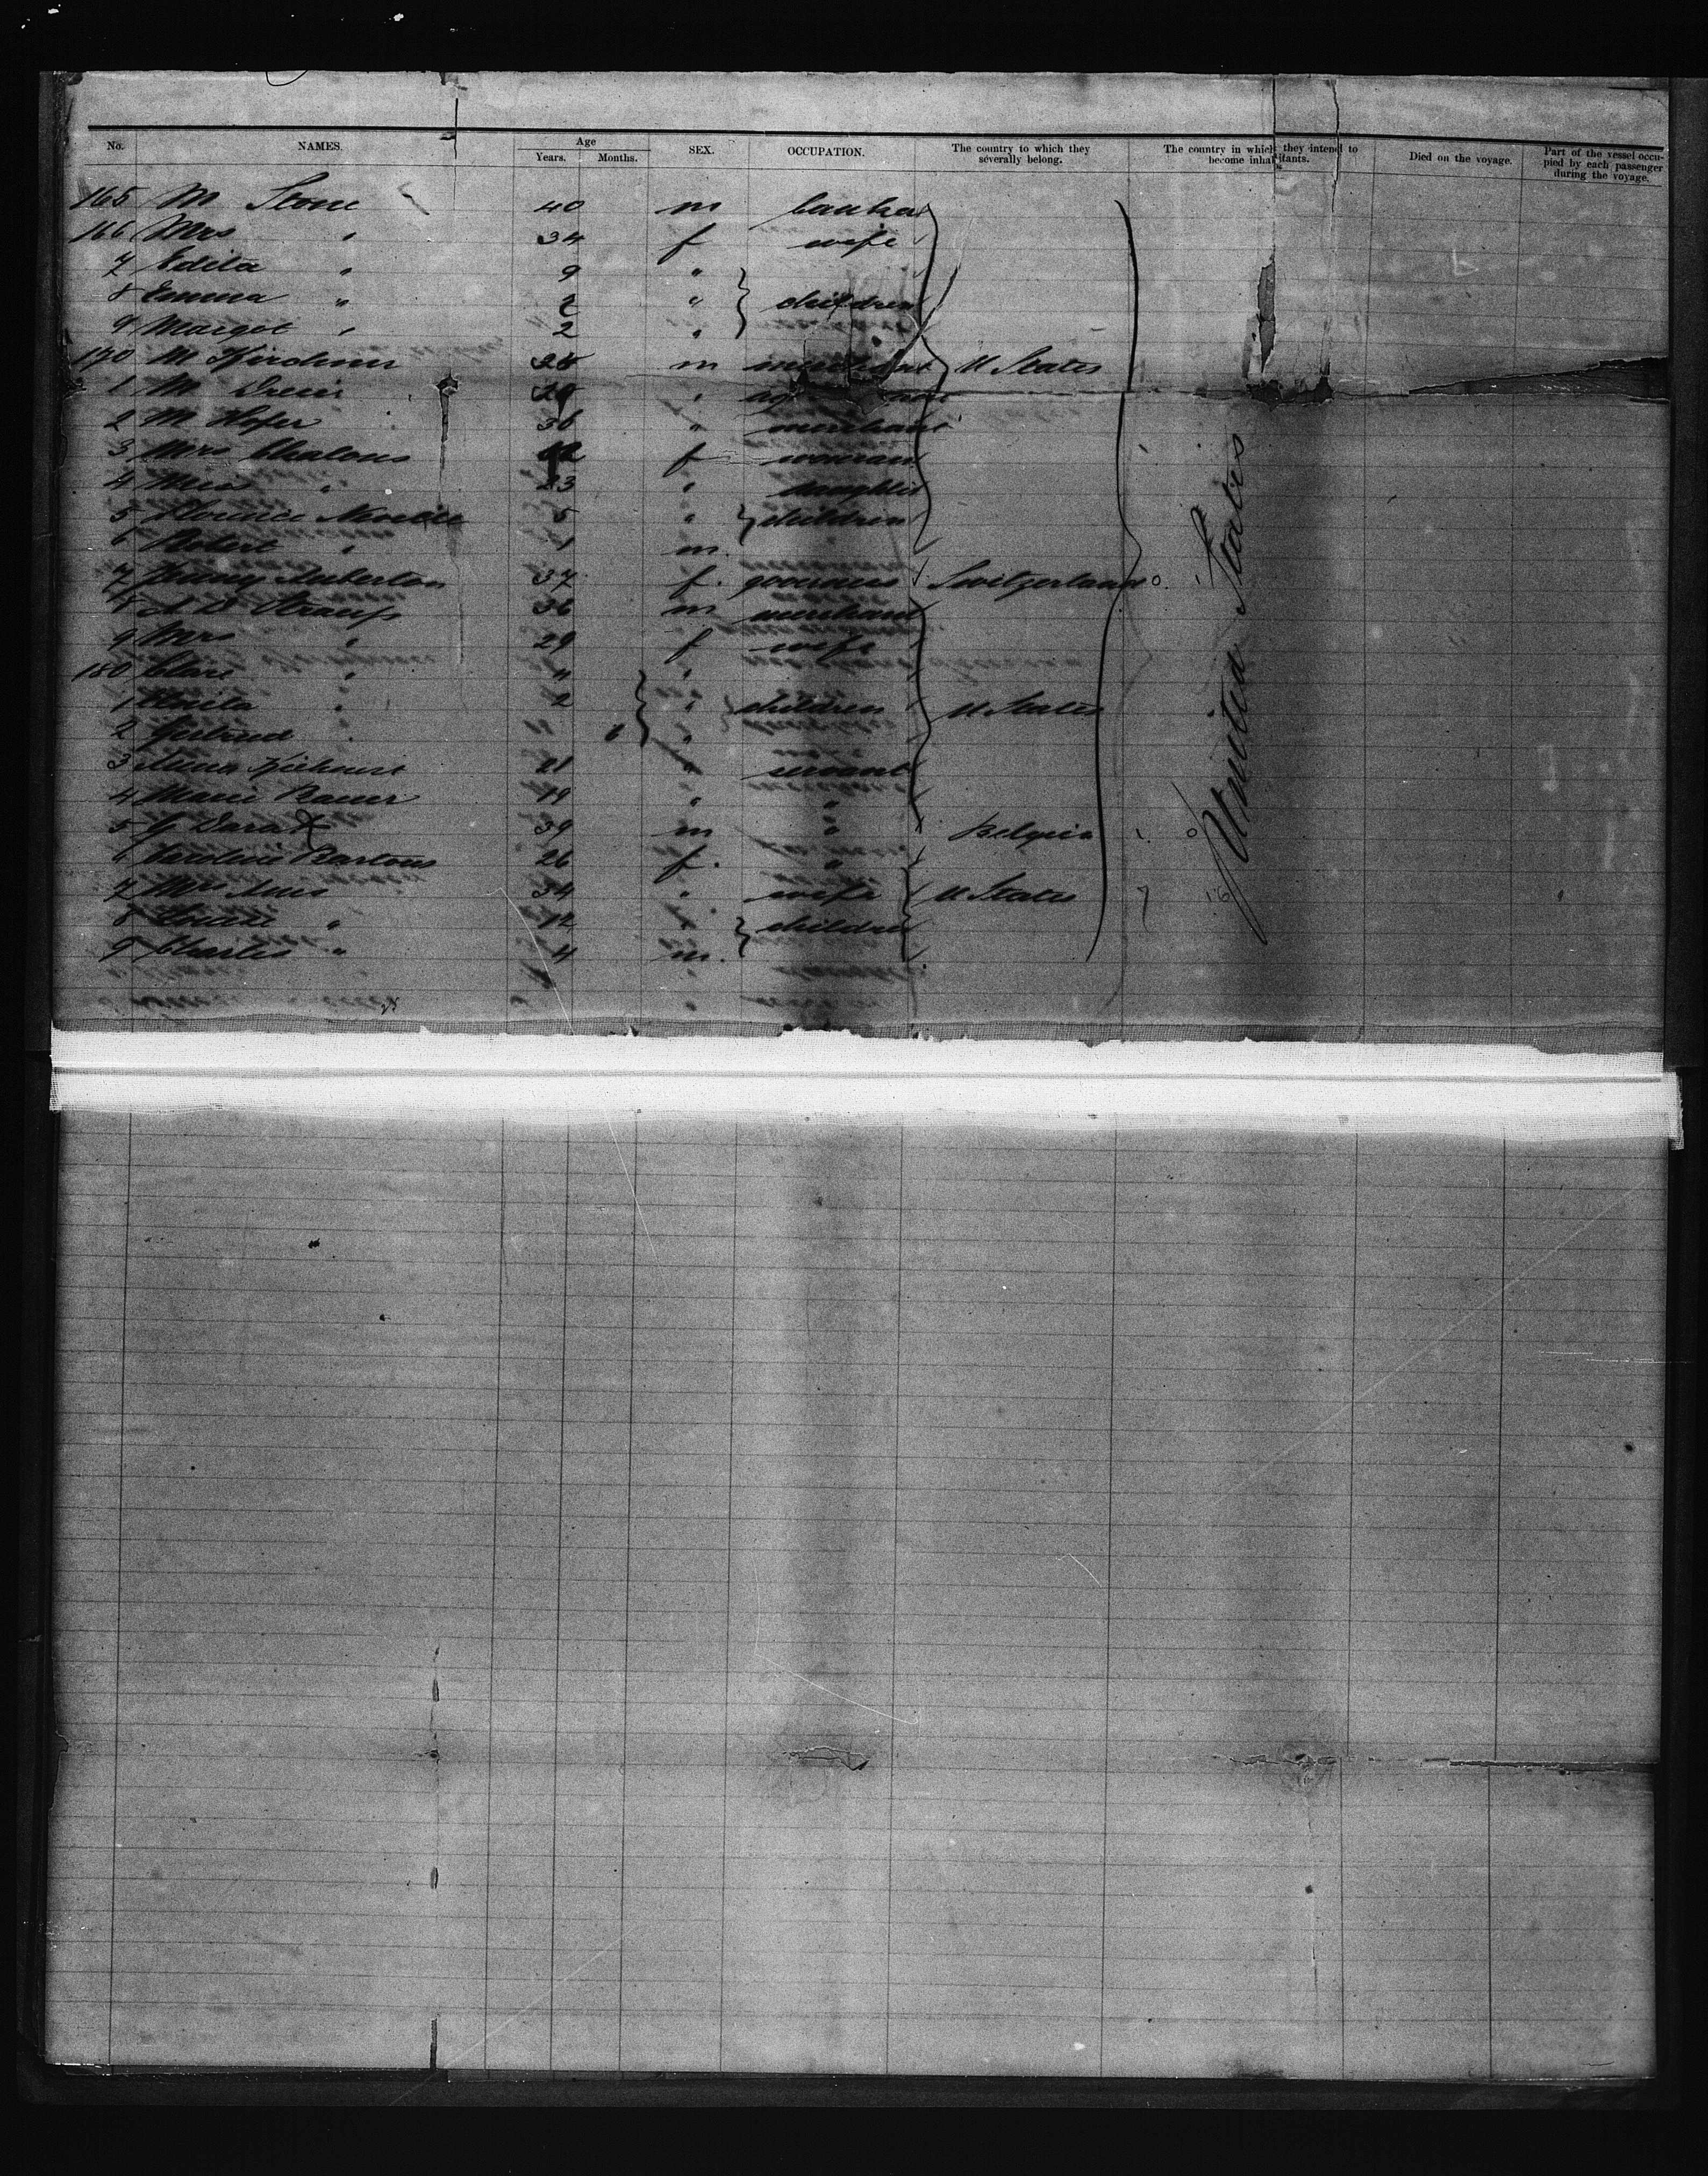 No. NAMES. Age Years. Months. SEX. OCCUPATION. The country to which they severally belong. The country in which they intend to become inhabitants. Died on the voyage. Part of the vessel occupied by each passenger during the voyage.
165 M Stone 40 m banker
166 Mrs " 34 f wife
7 Edita " 9 "
8 Emma " 2 " children
9 Margot " 2 "
170 M Kirchner 28 m merchant U States
1 M 29 "
2 M Hofer 36 " merchant
3 Mrs Chalons f woman
4 Miss " 23 " daughter
5 Florence 5 " children
6 Robert " 1 m.
7 Auberton 37 f. governess Switzerland
8 A B Strauss 36 m merchant
9 Mrs " 29 f wife
180 Clare " " "
1 " 2 " children U States
2 Gertrud " 6 "
3 Anna 21 " servant
4 Marie Bauer 19 " "
5 G 39 m " Belgien
6 Caroline Bartons 26 f. "
7 Mrs 34 " wife U States
8 Louise " 12 " children
9 Charles " 4 m.
United States